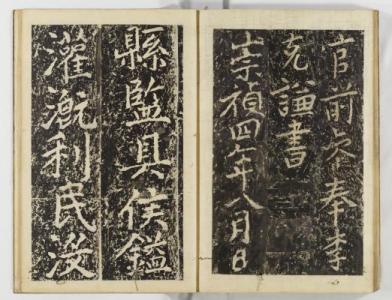 官前叅奉李
克謙書
崇禎四年八月日
縣監具侯鎰
灌漑利民没